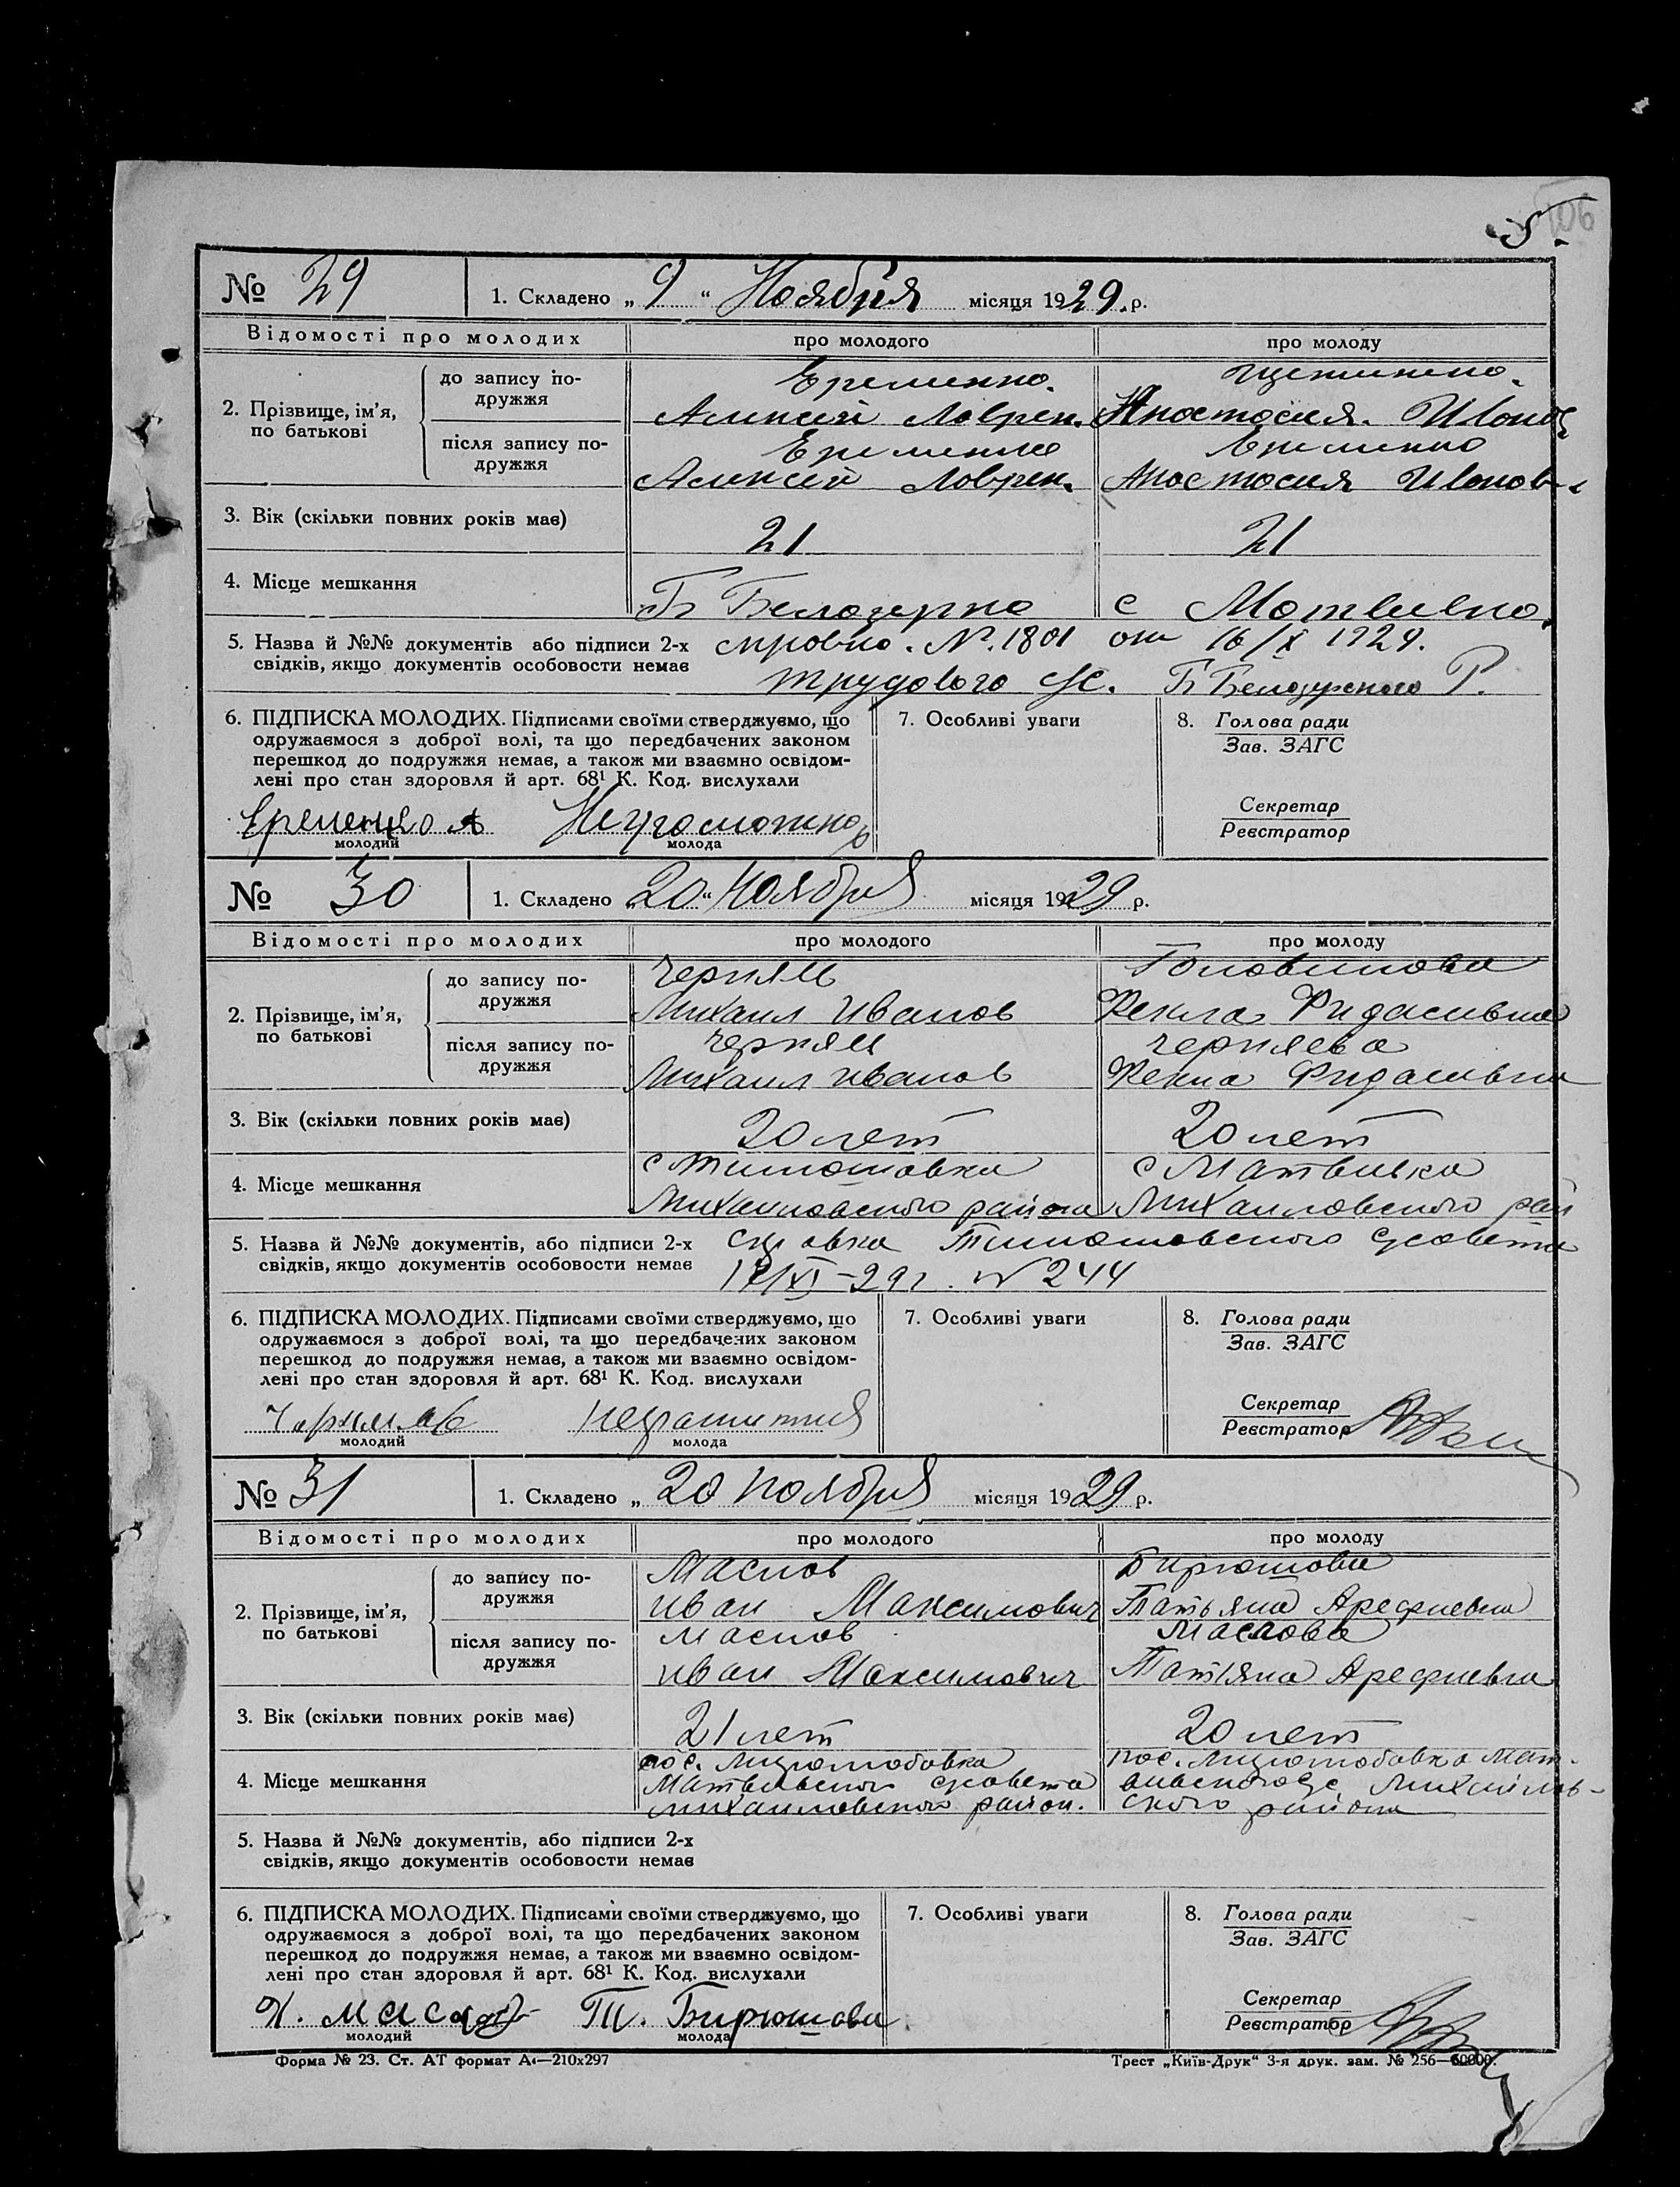 106
5
№ 29 1. Складено „ 9 “ Ноября місяця 1929. р.
Відомості про молодих про молодого про молоду
2. Прізвище, ім’я, по батькові
до запису подружжя Еременко. Щетинена.
Алексей Лаврен. Анастасия. Иванов.
після запису подружжя Еременко Еременко
Алексей Лаврен. Анастасия Иванов
3. Вік (скільки повних років має) 21 21
4. Місце мешкання Б Белозерка с Матвеевка.
5. Назва й №№ документів або підписи 2-х справка. №. 1801 от 16/X 1929.
свідків, якщо документів особовости немає
трудового с/с. Б Белозерского Р.
6. ПІДПИСКА МОЛОДИХ. Підписами своїми стверджуємо, що 7. Особливі уваги 8. Голова ради
одружаємося з доброї волі, та що передбачених законом Зав. ЗАГС
перешкод до подружжя немає, а також ми взаємно освідом-
лені про стан здоровля й арт. 68¹ К. Код. вислухали
Секретар
Еременко А Неграмотная Реєстратор
молодий молода
№ 30 1. Складено „ 20 “ Ноября місяця 1929 р.
Відомості про молодих про молодого про молоду
2. Прізвище, ім’я, по батькові
до запису подружжя Черняев Головинова
Михаил Иванов Фекла
після запису подружжя Черняев Черняева
Михаил Иванов Фекла
3. Вік (скільки повних років має) 20 лет 20 лет
4. Місце мешкання с Тимошовка с Матвивка
Михаиловского района Михаиловского рай
5. Назва й №№ документів, або підписи 2-х справка Тимошовского с/совета
свідків, якщо документів особовости немає /XI-29 г. № 244
6. ПІДПИСКА МОЛОДИХ. Підписами своїми стверджуємо, що 7. Особливі уваги 8. Голова ради
одружаємося з доброї волі, та що передбачених законом Зав. ЗАГС
перешкод до подружжя немає, а також ми взаємно освідом-
лені про стан здоровля й арт. 68¹ К. Код. вислухали
Секретар
неграмотная Реєстратор
молодий молода
№ 31 1. Складено „ 20 ноября місяця 1929 р.
Відомості про молодих про молодого про молоду
2. Прізвище, ім’я, по батькові
до запису подружжя Маслов Бирюшова
Иван Максимович Татьяна Арефиевна
після запису подружжя Маслов Маслова
Иван Максимович Татіяна Арефиевна
3. Вік (скільки повних років має) 21 лет 20 лет
пос. пос. Мат-
4. Місце мешкання Матвивского с/совета вивского с/с Михайлов-
Михаиловского район. ского района
5. Назва й №№ документів, або підписи 2-х
свідків, якщо документів особовости немає
6. ПІДПИСКА МОЛОДИХ. Підписами своїми стверджуємо, що 7. Особливі уваги 8. Голова ради
одружаємося з доброї волі, та що передбачених законом Зав. ЗАГС
перешкод до подружжя немає, а також ми взаємно освідом-
лені про стан здоровля й арт. 68¹ К. Код. вислухали
Секретар
И. Маслов Т. Бирюшова Реєстратор
молодий молода
Форма № 23. Ст. АТ формат А4—210х297 Трест „Київ-Друк“ 3-я друк. зам. № 256—60000.